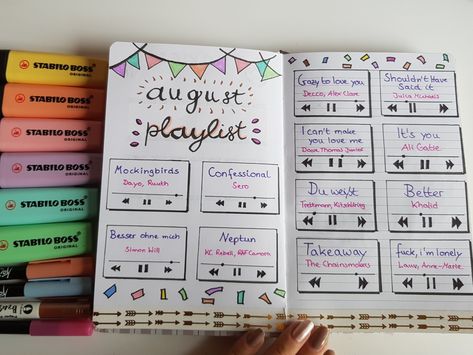 STABILO BOSS
ORIGINAL
STABILO BOSS
ORIGINAL
STABILO BOSS
ORIGINAL
STABILO BOSS
ORIGINAL
STABILO BOSS
ORIGINAL
STABILO BOSS
ORIGINAL
august
playlist
Mockingbirds
Dayo, Ruuth
Confessional
Sero
Besser ohne mich
Simon Will
Neptun
KC Rebell, RAF Camora
Crazy to love you
Decco, Alex Clare
Shouldn't Have
Said it
Julia Michaels
I can't make
you love me
Dave Thomas Junior
It's you
Ali Gatie
Du weißt
Better
Khalid
Takeaway
The Chainsmokers
fuck, i'm lonely
Lauv, Anne-Marie